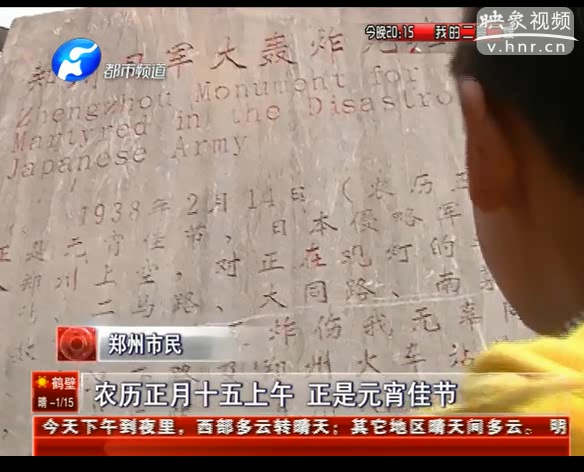 今晚20:15 我的二
映象视频
v.hnr.cn
都市频道
军大轰炸
Zhengzhou Monument for
Martyred in the Disastro
Japanese Army
1938年2月14日(农历正
是元宵佳节,日本侵略军
郑州上空,对正在观灯的
二马路、大同路、南
炸伤我无辜
州火车站
郑州市民
农历正月十五上午 正是元宵佳节
鹤壁
晴 -1/15
今天下午到夜里,西部多云转晴天;其它地区晴天间多云。明